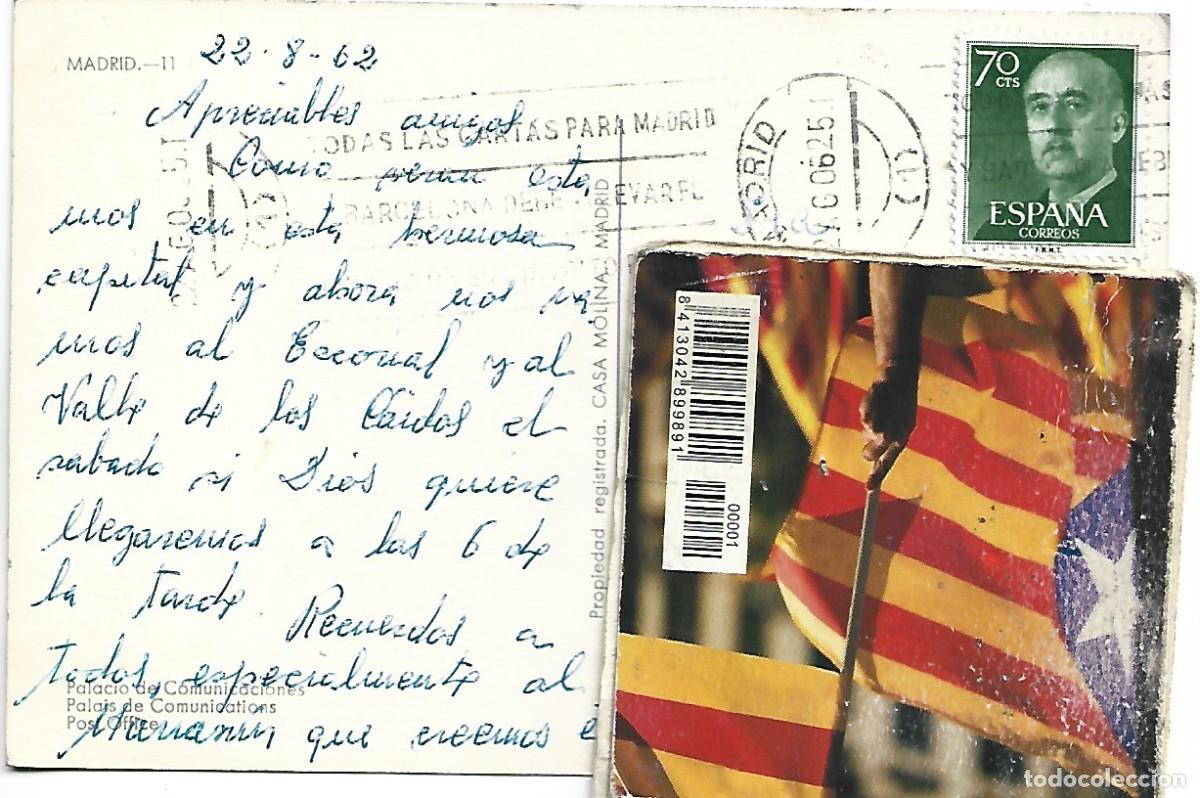 MADRID.—11
22-8-62
Apreciables amigos
Como veran esta
mos en esta hermosa
capital y ahora nos va
mos al Escorial y al
Valle de los Cáidos el
sabado si Dios quiere
llegaremos a las 6 de
la tarde. Recuerdos a
todos, especialmente al
que creemos
Palacio de Comunicaciones
Palais de Comunications
Post Office
TODAS LAS CARTAS PARA MADRID
BARCELONA DEBE LLEVAR EL
MADRID
Propiedad registrada. CASA MOLINA.- MADRID
70
CTS
ESPAÑA
CORREOS
F.N.M.T.
8 413042 899891
00001
todocoleccion